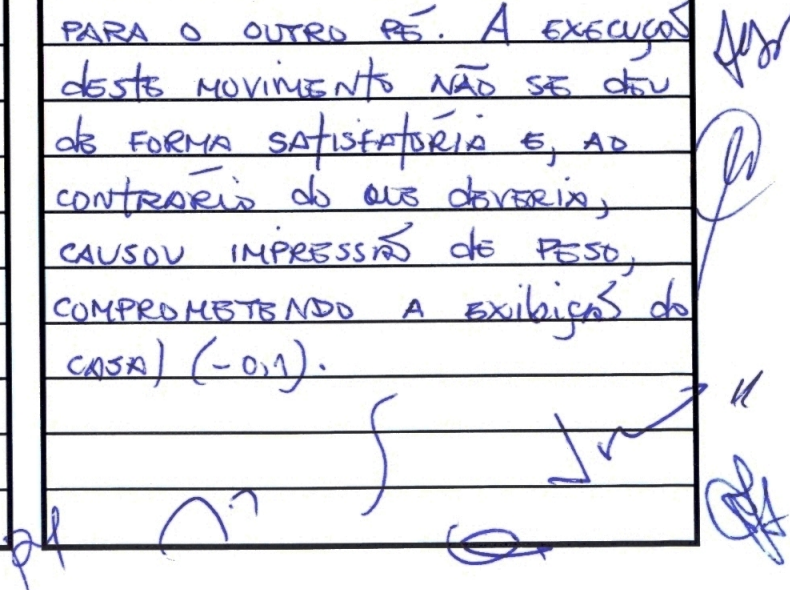 PARA O OUTRO PÉ. A EXECUÇÃO
DESTE MOVIMENTO NÃO SE DEU
DE FORMA SATISFATÓRIA E, AO
CONTRÁRIO DO QUE DEVERIA,
CAUSOU IMPRESSÃO DE PESO,
COMPROMETENDO A EXIBIÇÃO DO
CASAL (-0,1).